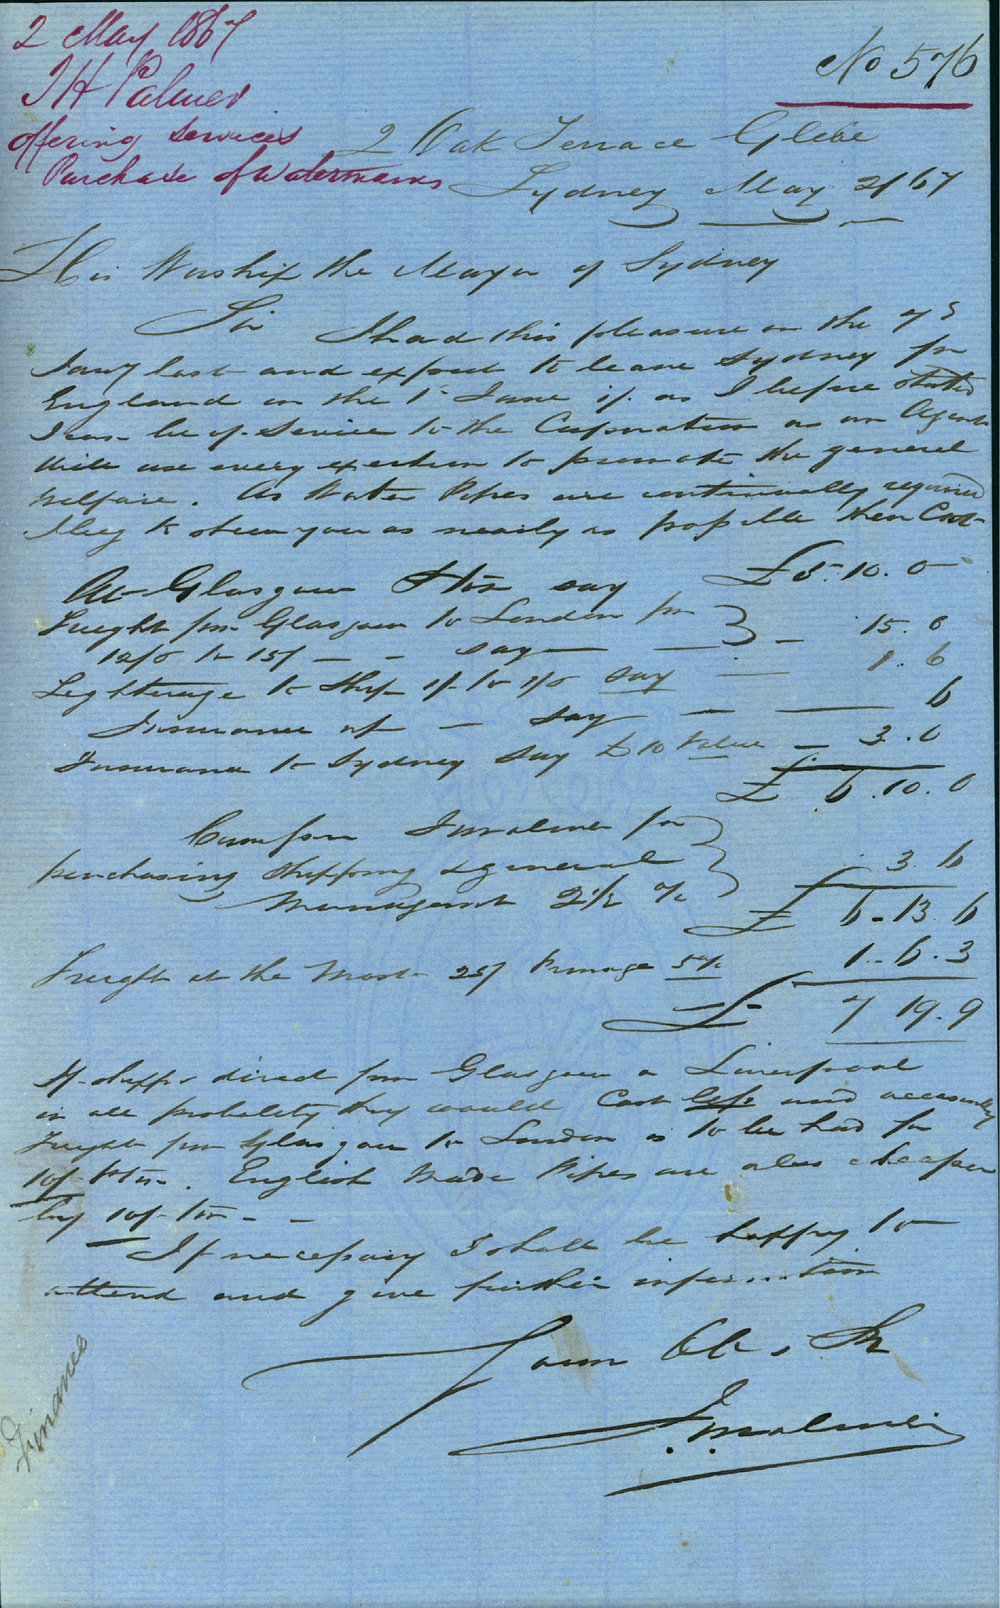 2 May 1867
J H Palmer
offering services
Purchase of Watermains
No 576
2 Oak Terrace Glebe
Sydney May 2/67
His Worship the Mayor of Sydney
Sir I had this pleasure on the 7th
Jany last and expect to leave Sydney for
England on the 1st June if as I before stated
I can be of Service to the Corporation as an Agent
will use every exertion to promote the general
welfare. As Water Pipes are continually required
I beg to show you as nearly as possible their Cost
At Glasgow ton say £5.10.0
Freight from Glasgow to London from
12/6 to 15/ - - say - 15.0
Lighterage to Ship 1/- to 1/6 say 1.6
Insurance - say 6
Insurance to Sydney say £10 value - 3.0
£6.10.0
for
purchasing Shipping & general
Management 2 1/2 % 3.6
£6.13.6
Freight at the most 25/ Primage 5% 1.6.3
£7.19.9
If shipped direct from Glasgow or Liverpool
in all probability they would Cost less and occasionally
Freight from Glasgow to London is to be had for
10/- ton. English Made Pipes are also cheaper
by 10/- ton - -
If necessary I shall be happy to
attend and give further information
Your Ob. St
Finance